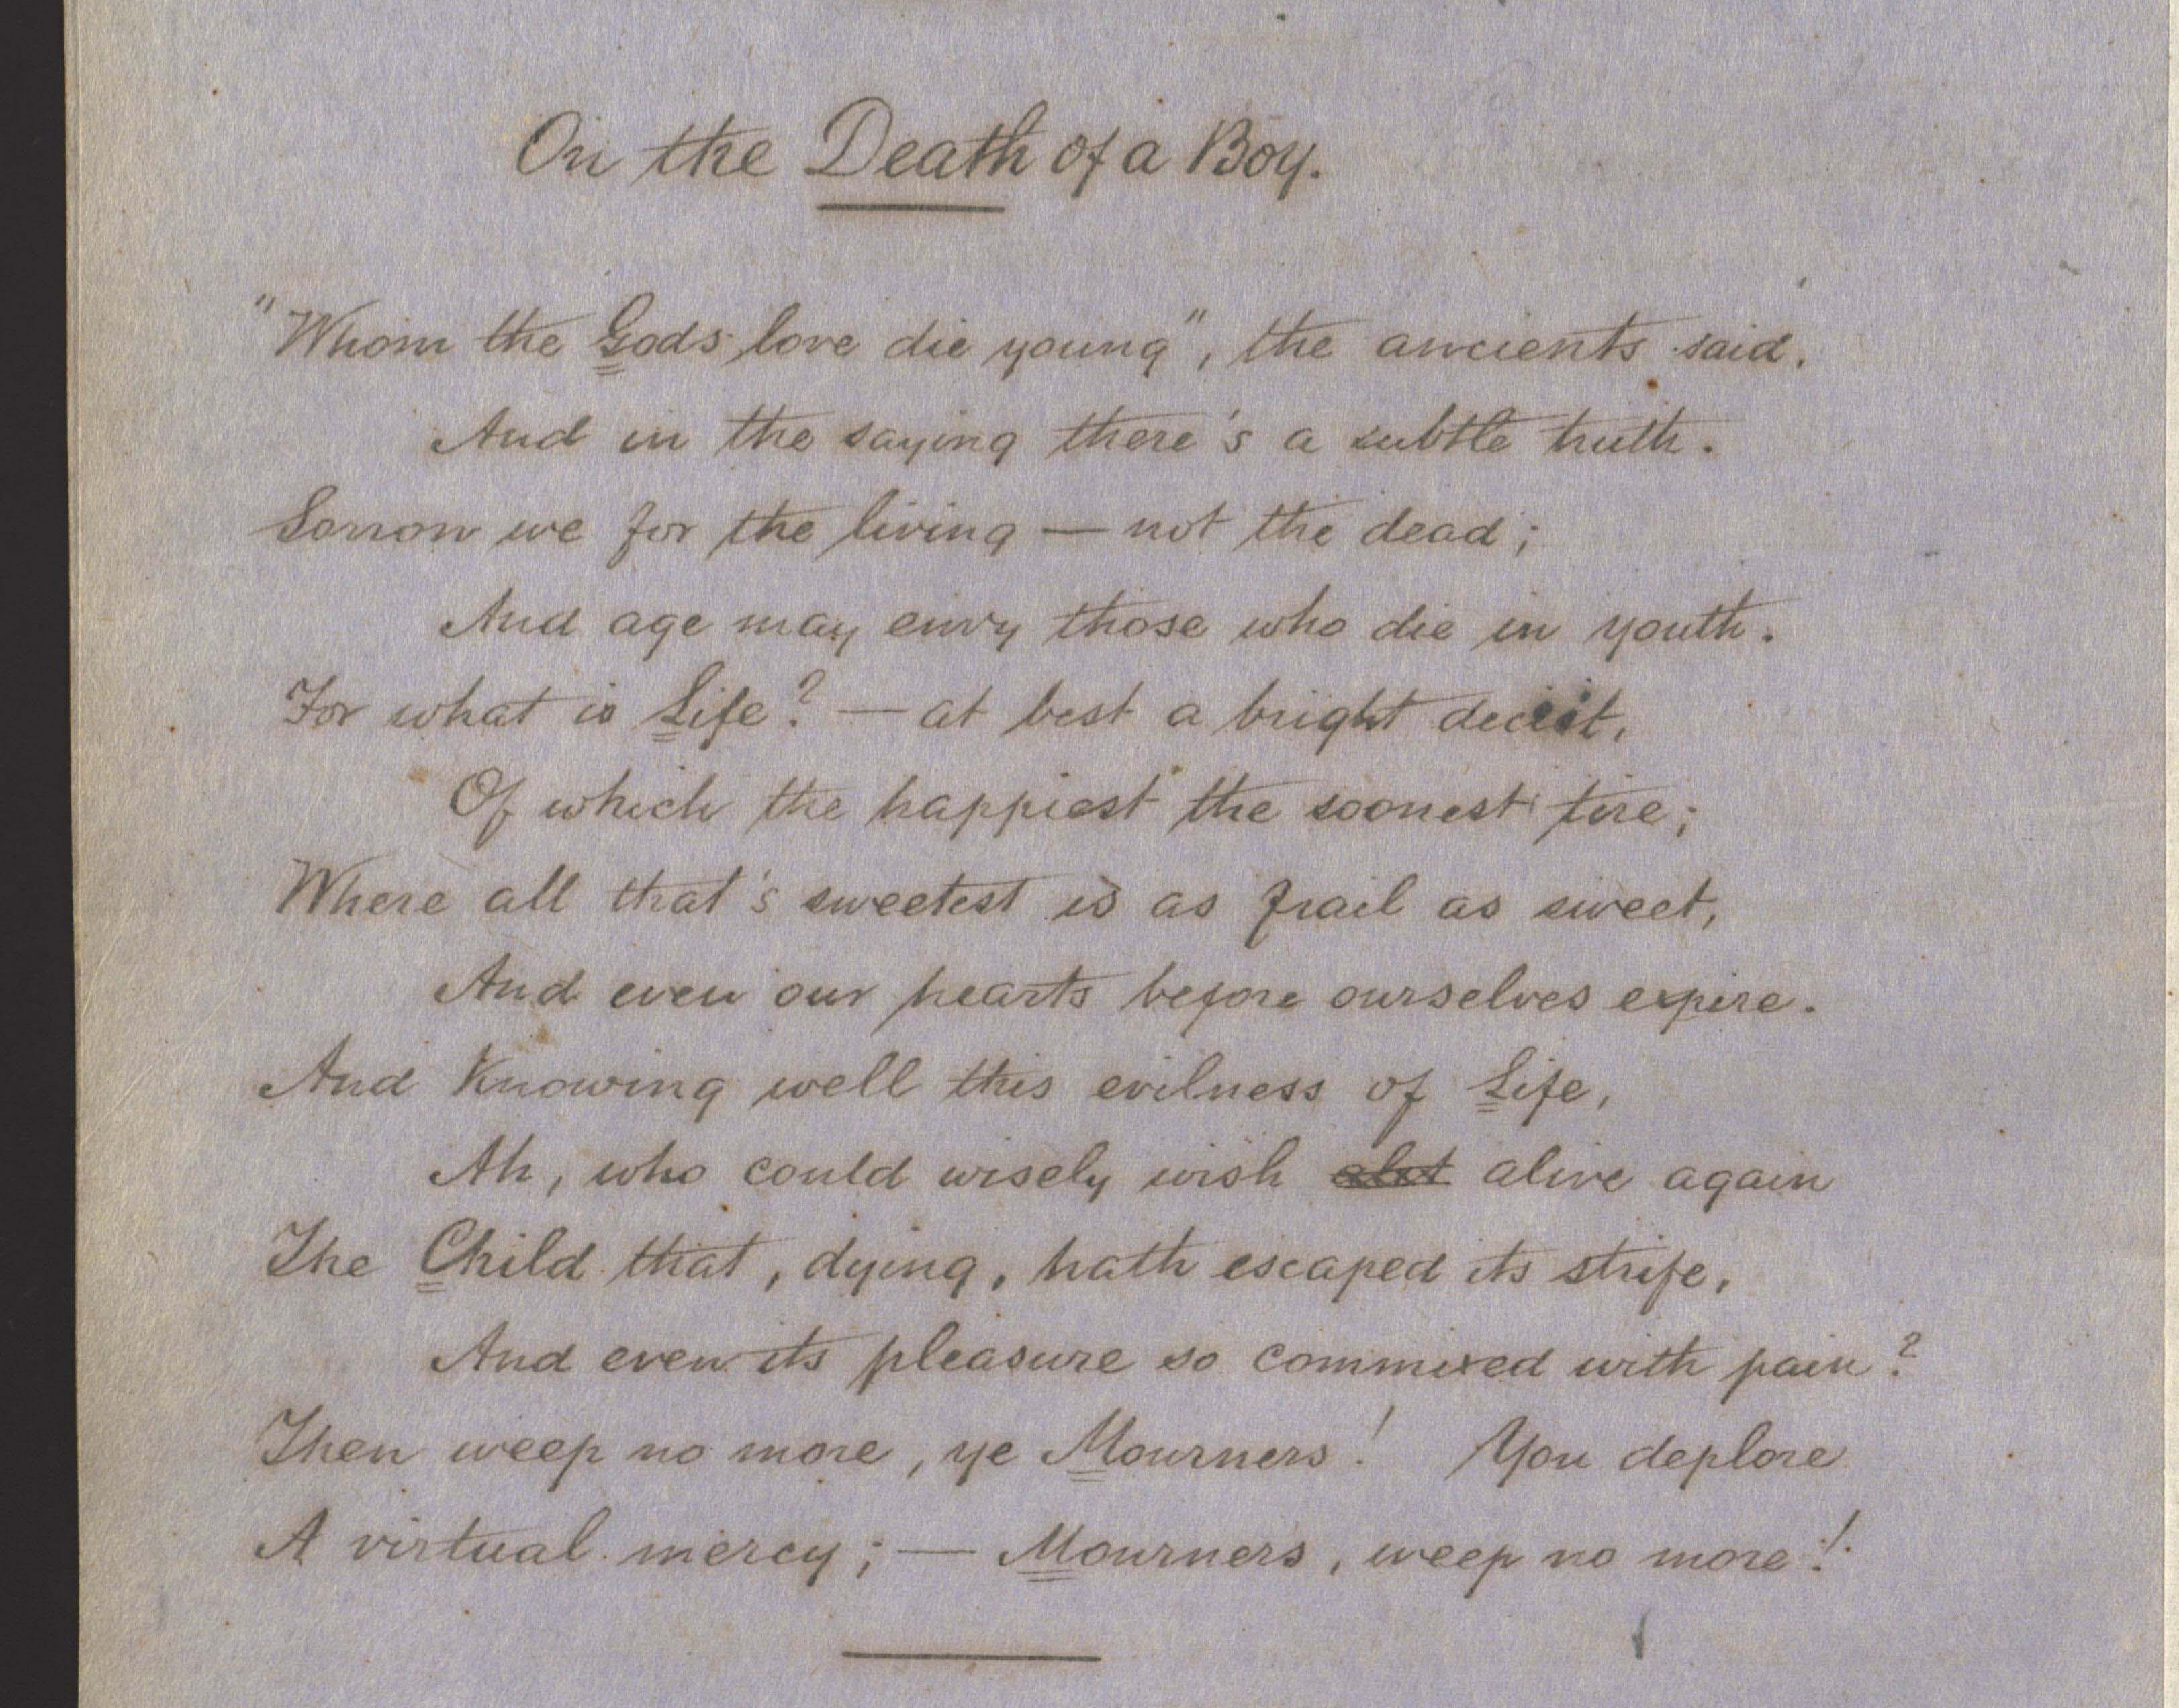 On the Death of a Boy.
"Whom the Gods love die young", the ancients said.
And in the saying there's a subtle truth.
Sorrow we for the living — not the dead;
And age may envy those who die in youth.
For what is Life? — at best a bright deceit,
Of which the happiest the soonest tire;
Where all that's sweetest is as frail as sweet,
And even our hearts before ourselves expire.
And Knowing well this evilness of Life,
Ah, who could wisely wish alive again
The Child that, dying, hath escaped its strife,
And even its pleasure so commixed with pain?
Then weep no more, ye Mourners! You deplore
A virtual mercy; — Mourners, weep no more!